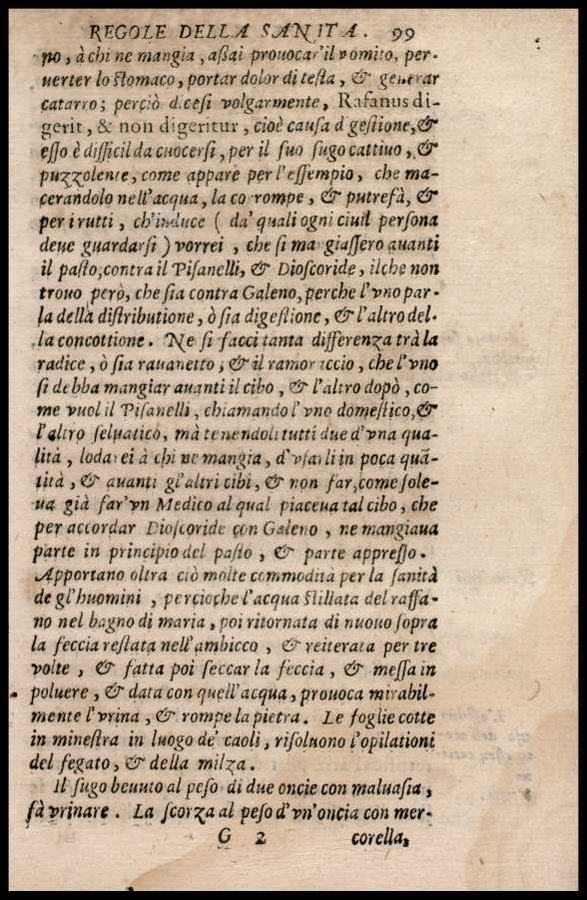 REGOLE DELLA SANITA. 99
no, à chi ne mangia, aſſai prouocar'il vomito, per-
uerter lo ſtomaco, portar dolor di teſta, & generar
catarro; perciò diceſi volgarmente, Rafanus di-
gerit, & non digeritur, cioè cauſa d'geſtione, &
eſſo è difficil da cuocerſi, per il ſuo ſugo cattiuo, &
puzzolente, come appare per l'eſſempio, che ma-
cerandolo nell'acqua, la corrompe, & putrefà, &
per i rutti, ch'induce ( da' quali ogni ciuil perſona
deue guardarſi ) vorrei, che ſi mangiaſſero auanti
il paſto, contra il Piſanelli, & Dioſcoride, ilche non
trouo però, che ſia contra Galeno, perche l'vno par-
la della diſtributione, ò ſia digeſtione, & l'altro del-
la concottione. Ne ſi facci tanta differenza trà la
radice, ò ſia rauanetto, & il ramoriccio, che l'vno
ſi debba mangiar auanti il cibo, & l'altro dopò, co-
me vuol il Piſanelli, chiamando l'vno domeſtico, &
l'altro ſeluatico, mà tenendoli tutti due d'vna qua-
lità, lodarei à chi ne mangia, d'vſarli in poca quā-
tità, & auanti gl'altri cibi, & non far, come ſole-
ua già far'vn Medico al qual piaceua tal cibo, che
per accordar Dioſcoride con Galeno, ne mangiaua
parte in principio del paſto, & parte appreſſo.
Apportano oltra ciò molte commodità per la ſanità
de gl'huomini, percioche l'acqua ſtillata del raffa-
no nel bagno di maria, poi ritornata di nuouo ſopra
la feccia reſtata nell'ambicco, & reiterata per tre
volte, & fatta poi ſeccar la feccia, & meſſa in
poluere, & data con quell'acqua, prouoca mirabil-
mente l'vrina, & rompe la pietra. Le foglie cotte
in mineſtra in luogo de' caoli, riſoluono l'opilationi
del fegato, & della milza.
Il ſugo beuuto al peſo di due oncie con maluaſia,
fà vrinare. La ſcorza al peſo d'vn'oncia con mer-
G 2 corella,